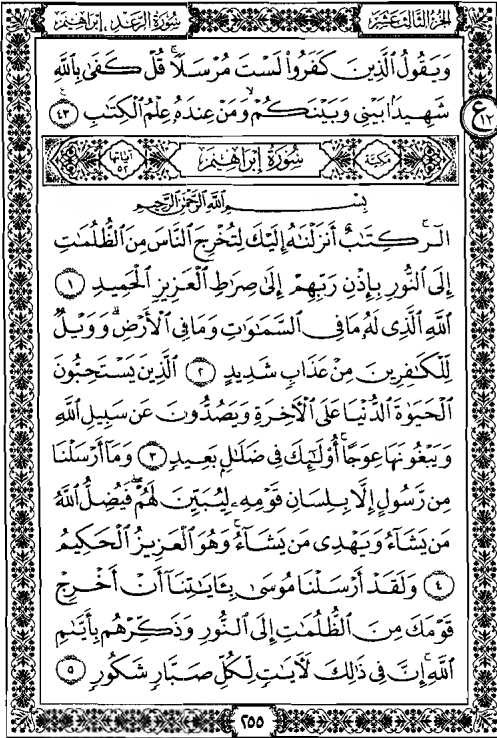 الجزء الثالث عشر
سورة الرعد، إبراهيم
وَيَقُولُ الَّذِينَ كَفَرُوا لَسْتَ مُرْسَلًا ۚ قُلْ كَفَىٰ بِاللَّهِ
شَهِيدًا بَيْنِي وَبَيْنَكُمْ ۙ وَمَنْ عِندَهُ عِلْمُ الْكِتَابِ ٤٣
ع ١٢
مكية
سُورَةُ إِبْرَاهِيمَ
آياتها ٥٢
بِسْمِ اللَّهِ الرَّحْمَٰنِ الرَّحِيمِ
الٓر ۚ كِتَابٌ أَنزَلْنَٰهُ إِلَيْكَ لِتُخْرِجَ النَّاسَ مِنَ الظُّلُمَاتِ
إِلَى النُّورِ بِإِذْنِ رَبِّهِمْ إِلَىٰ صِرَاطِ الْعَزِيزِ الْحَمِيدِ ١
اللَّهِ الَّذِي لَهُ مَا فِي السَّمَاوَاتِ وَمَا فِي الْأَرْضِ ۗ وَوَيْلٌ
لِّلْكَافِرِينَ مِنْ عَذَابٍ شَدِيدٍ ٢ الَّذِينَ يَسْتَحِبُّونَ
الْحَيَوٰةَ الدُّنْيَا عَلَى الْآخِرَةِ وَيَصُدُّونَ عَن سَبِيلِ اللَّهِ
وَيَبْغُونَهَا عِوَجًا ۚ أُولَٰئِكَ فِي ضَلَالٍ بَعِيدٍ ٣ وَمَا أَرْسَلْنَا
مِن رَّسُولٍ إِلَّا بِلِسَانِ قَوْمِهِ لِيُبَيِّنَ لَهُمْ ۖ فَيُضِلُّ اللَّهُ
مَن يَشَاءُ وَيَهْدِي مَن يَشَاءُ ۚ وَهُوَ الْعَزِيزُ الْحَكِيمُ
٤ وَلَقَدْ أَرْسَلْنَا مُوسَىٰ بِـَٔايَاتِنَا أَنْ أَخْرِجْ
قَوْمَكَ مِنَ الظُّلُمَاتِ إِلَى النُّورِ وَذَكِّرْهُم بِأَيَّىٰمِ
اللَّهِ ۚ إِنَّ فِي ذَٰلِكَ لَآيَاتٍ لِّكُلِّ صَبَّارٍ شَكُورٍ ٥
٢٥٥